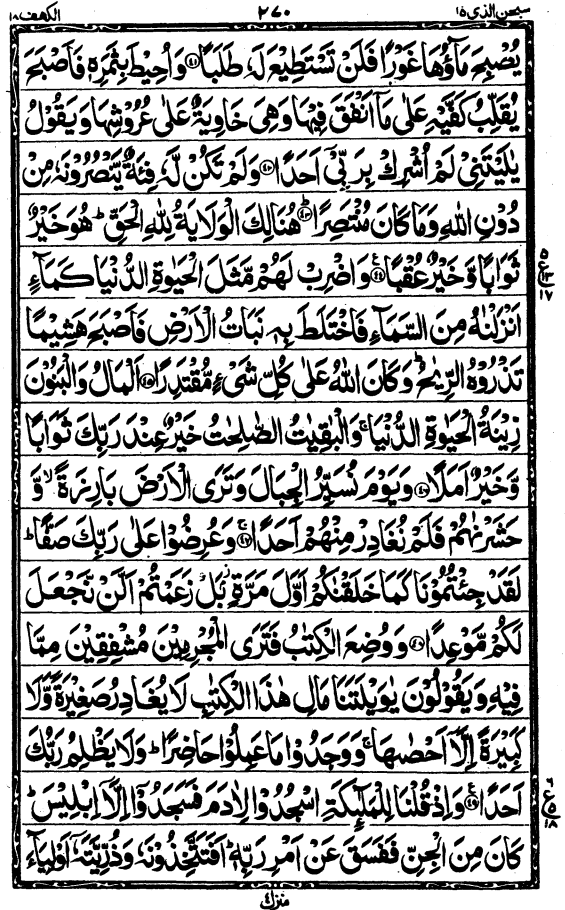 سبحن الذی ۱۵ ۲۷۰ الكهف ۱۸
يُصْبِحَ مَآؤُهَا غَوْرًا فَلَنْ تَسْتَطِيْعَ لَهٗ طَلَبًا ﴿۴۱﴾ وَ اُحِيْطَ بِثَمَرِهٖ فَاَصْبَحَ
يُقَلِّبُ كَفَّيْهِ عَلٰى مَاۤ اَنْفَقَ فِيْهَا وَهِىَ خَاوِيَةٌ عَلٰى عُرُوْشِهَا وَيَقُوْلُ
يٰلَيْتَنِىْ لَمْ اُشْرِكْ بِرَبِّىْۤ اَحَدًا ﴿۴۲﴾ وَلَمْ تَكُنْ لَّهٗ فِئَةٌ يَّنْصُرُوْنَهٗ مِنْ
دُوْنِ اللّٰهِ وَمَا كَانَ مُنْتَصِرًا ﴿۴۳﴾ؕ هُنَالِكَ الْوَلَايَةُ لِلّٰهِ الْحَقِّ ؕ هُوَ خَيْرٌ
ثَوَابًا وَّخَيْرٌ عُقْبًا ﴿۴۴﴾ع وَاضْرِبْ لَهُمْ مَّثَلَ الْحَيٰوةِ الدُّنْيَا كَمَآءٍ
اَنْزَلْنٰهُ مِنَ السَّمَآءِ فَاخْتَلَطَ بِهٖ نَبَاتُ الْاَرْضِ فَاَصْبَحَ هَشِيْمًا
تَذْرُوْهُ الرِّيٰحُ ؕ وَكَانَ اللّٰهُ عَلٰى كُلِّ شَىْءٍ مُّقْتَدِرًا ﴿۴۵﴾ اَلْمَالُ وَالْبَنُوْنَ
زِيْنَةُ الْحَيٰوةِ الدُّنْيَا ۚ وَالْبٰقِيٰتُ الصّٰلِحٰتُ خَيْرٌ عِنْدَ رَبِّكَ ثَوَابًا
وَّخَيْرٌ اَمَلًا ﴿۴۶﴾ وَيَوْمَ نُسَيِّرُ الْجِبَالَ وَتَرَى الْاَرْضَ بَارِزَةً ۙ وَّ
حَشَرْنٰهُمْ فَلَمْ نُغَادِرْ مِنْهُمْ اَحَدًا ﴿۴۷﴾ۚ وَعُرِضُوْا عَلٰى رَبِّكَ صَفًّا ؕ
لَقَدْ جِئْتُمُوْنَا كَمَا خَلَقْنٰكُمْ اَوَّلَ مَرَّةٍۭ ؗ بَلْ زَعَمْتُمْ اَلَّنْ نَّجْعَلَ
لَكُمْ مَّوْعِدًا ﴿۴۸﴾ وَوُضِعَ الْكِتٰبُ فَتَرَى الْمُجْرِمِيْنَ مُشْفِقِيْنَ مِمَّا
فِيْهِ وَيَقُوْلُوْنَ يٰوَيْلَتَنَا مَالِ هٰذَا الْكِتٰبِ لَا يُغَادِرُ صَغِيْرَةً وَّلَا
كَبِيْرَةً اِلَّاۤ اَحْصٰىهَا ۚ وَوَجَدُوْا مَا عَمِلُوْا حَاضِرًا ؕ وَلَا يَظْلِمُ رَبُّكَ
اَحَدًا ﴿۴۹﴾ع وَاِذْ قُلْنَا لِلْمَلٰٓئِكَةِ اسْجُدُوْا لِاٰدَمَ فَسَجَدُوْۤا اِلَّاۤ اِبْلِيْسَ ؕ
كَانَ مِنَ الْجِنِّ فَفَسَقَ عَنْ اَمْرِ رَبِّهٖ ؕ اَفَتَتَّخِذُوْنَهٗ وَذُرِّيَّتَهٗۤ اَوْلِيَآءَ
منزل ۴